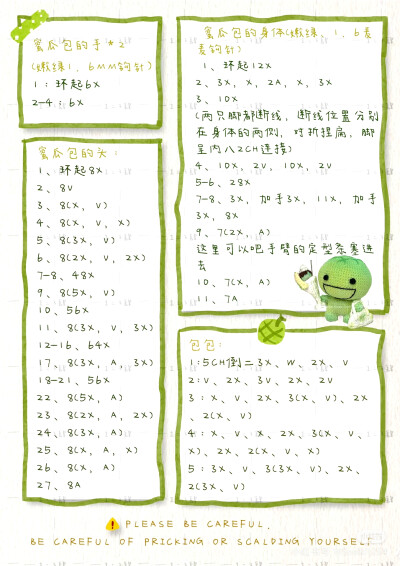 蜜瓜包的手*2
(嫩绿1，6MM钩针)
1：环起6X
2-4：6X
蜜瓜包的头：
1、环起8X
2、8V
3、8(X，V)
4、8(X，V，X)
5、8(3X，V)
6、8(2X，V，2X)
7-8、48X
9、8(5X，V)
10、56X
11、8(3X，V，3X)
12-16、64X
17、8(3X，A，3X)
18-21、56X
22、8(5X，A)
23、8(2X，A，2X)
24、8(3X，A)
25、8(X，A，X)
26、8(X，A)
27、8A
蜜瓜包的身体(嫩绿，1，6毫
米钩针)
1、环起12X
2、3X，X，2A，X，3X
3、10X
(两只脚都断线，断线位置分别
在身体的两侧，对折捏扁，脚
呈内八2CH连接)
4、10X，2V，10X，2V
5-6、28X
7-8、3X，加手3X，11X，加手
3X，8X
9、7(2X，A)
这里可以吧手臂的定型条塞进
去
10、7(X，A)
11、7A
包包：
1:5CH倒二3X，W，2X，V
2:V，2X，3V，2X，2V
3：X，V，2X，3(X，V)，2X
，2(X，V)
4：X，V，X，2X，3(X，V，
X)，2X，2(X，V，X)
5：3X，V，3(3X，V)，2X，
2(3X，V)
PLEASE BE CAREFUL.
BE CAREFUL OF PRICKING OR SCALDING YOURSELF